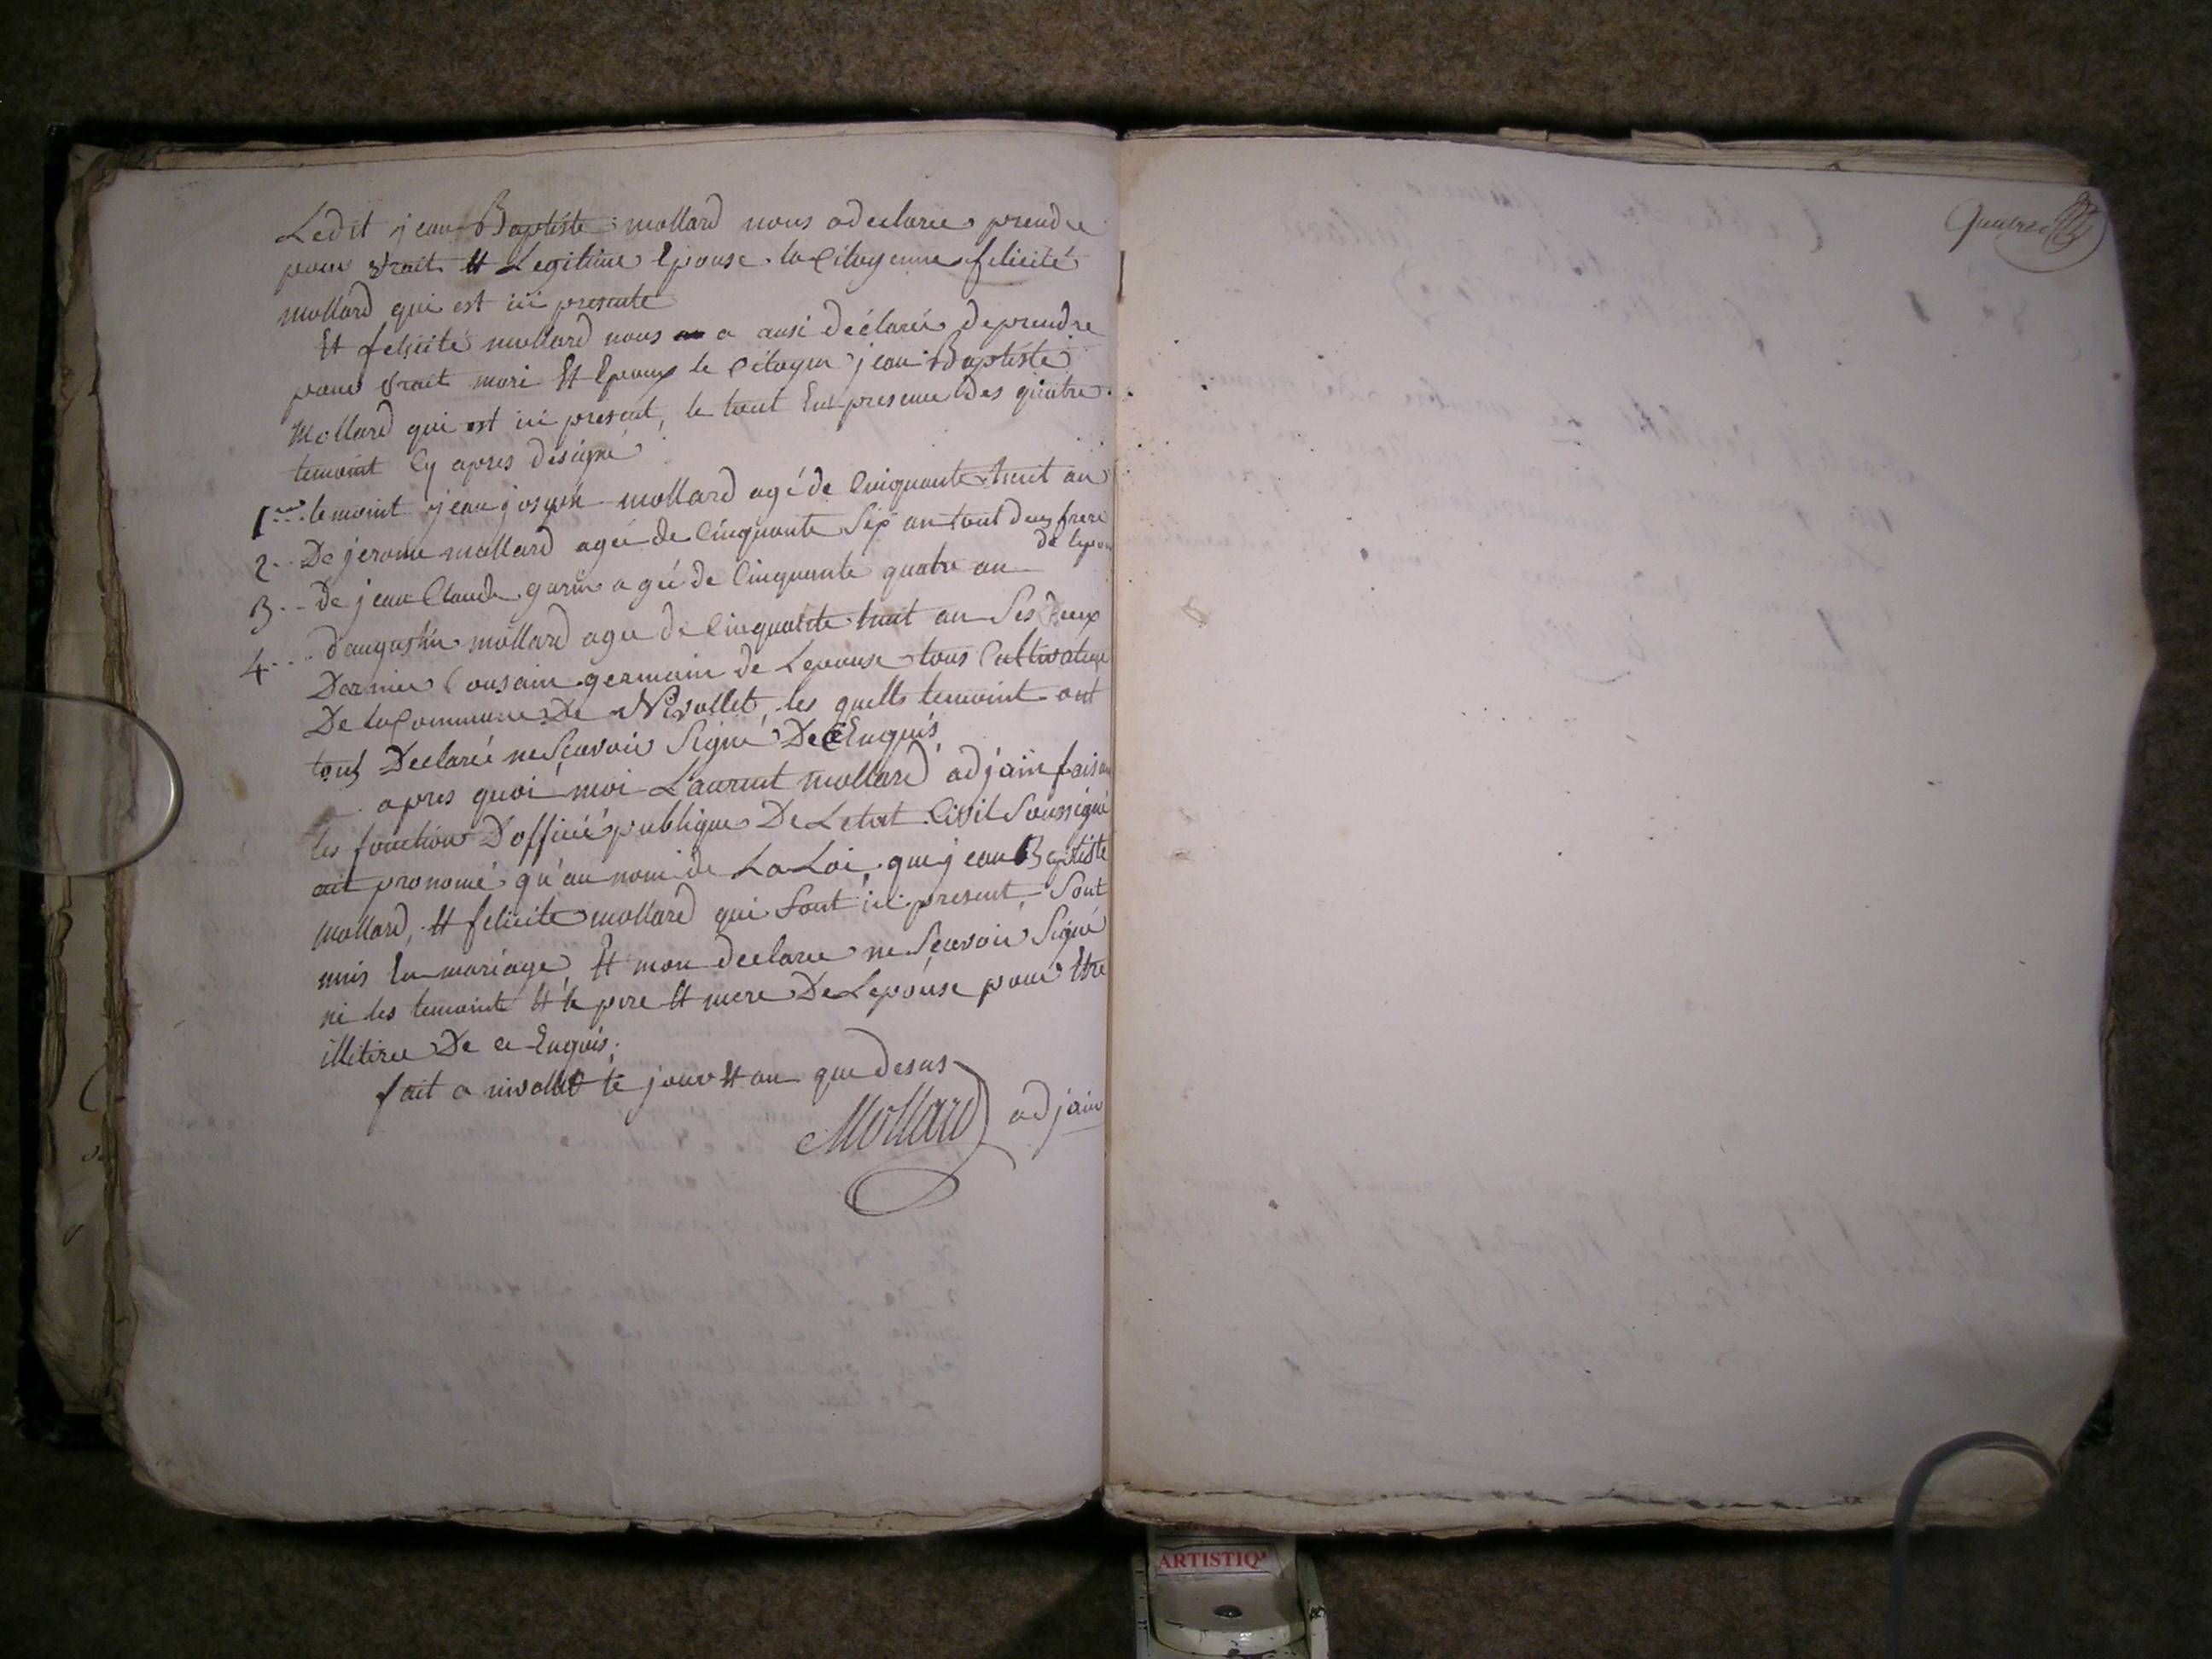 Ledit jean Baptiste mollard nous a declaree prendre
pour vrait Et Legitime Epouse la Citoyenne felicité
mollard qui est ici presente
Et felicité mollard nous a ausi déclarée de prendre
pour vrait mari Et Epoux le Citoyen jean Baptiste
Mollard qui est ici present, le tout En presence des quatre
temoint Cy apres designé
1er temoint jean joseph mollard agé de Cinquante huit an
2 De jerome mollard agée de Cinquante Six an tout deux frere
de lepou
3 de jean Claude garin agée de Cinquante quatre an
4 d'augustin mollard agee de Cinquante huit an Ses deux
Dernier Cousain germain de Lepouse tous Cultivateur
De la Commune De Nivollet, les quells temoint ont
tous Declareé ne Scavoir Signé De Ce Enquis
apres quoi moi Laurent mollard adjain faisan
les fonction D'officié publique De Letat Civil Soussigné
ait pronomé qu'au nom de La Loi, que jean Baptiste
mollard, Et felicite mollard qui Sont ici present, Sont
unis En mariage, Et mon declaree ne Scavoir Signé
ni les temoint Et le pere Et mere De Lepouse pour Etre
illitiree De ce Enquis.
fait a nivollet le jour Et an que desus
Mollard adjain
ARTISTIQ